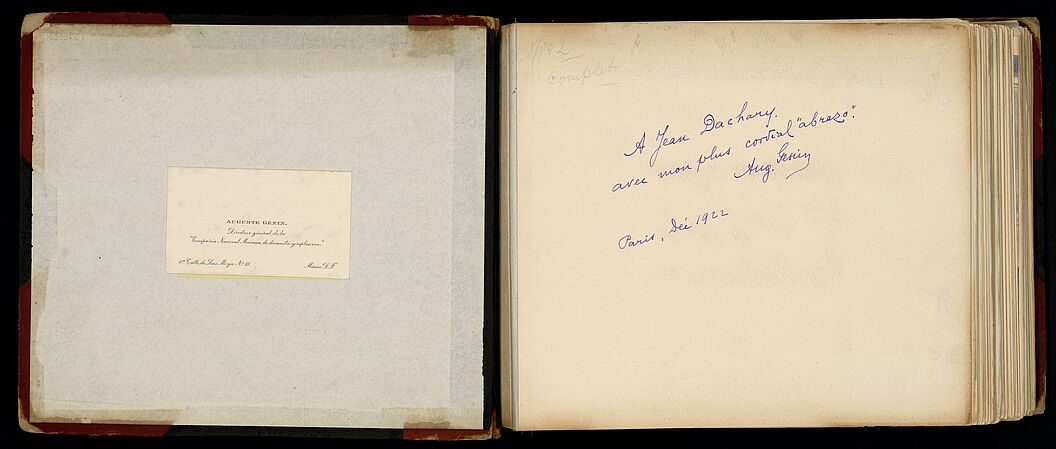 AUGUSTE GÉNIN,
Directeur général de la
"Compañia Nacional Mexicana de dinamita y explosivos"
1ª Calle de Luis Moya Nº 11. México D. F.
Nº 2
Complet
A Jean Dachary.
avec mon plus cordial "abrazo".
Aug. Génin
Paris, Déc 1922